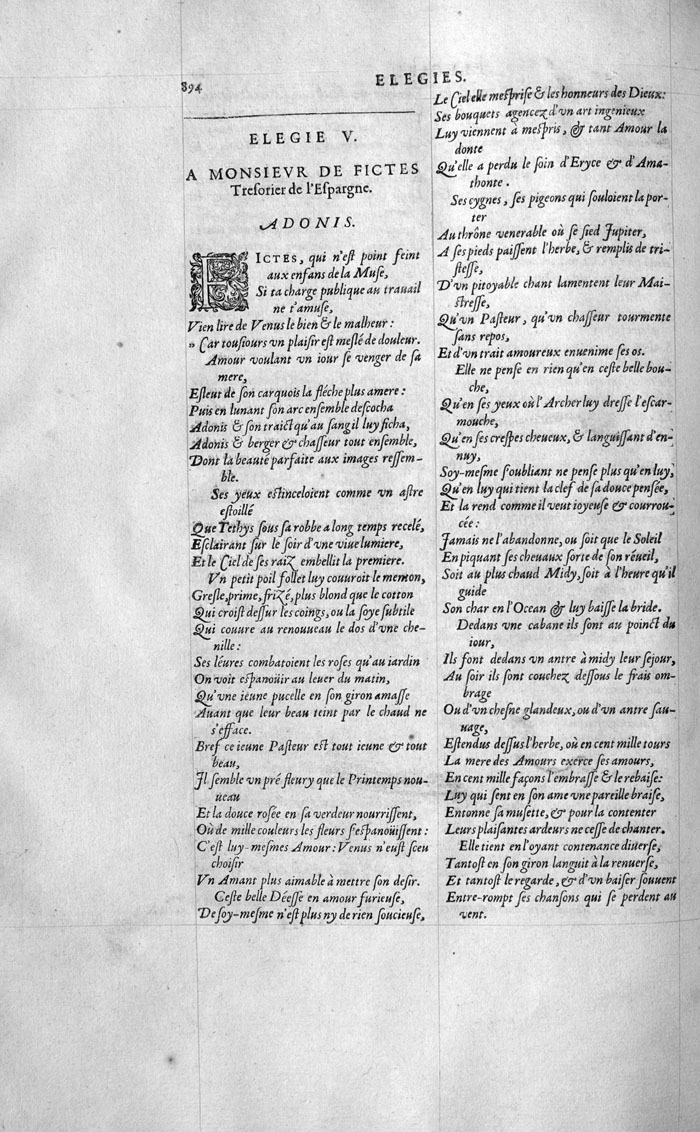 894
ELEGIES.
ELEGIE V.
A MONSIEVR DE FICTES
Treſorier de l'Eſpargne.
ADONIS.
FICTES, qui n'eſt point feint
aux enfans de la Muſe,
Si ta charge publique au trauail
ne t'amuſe,
Vien lire de Venus le bien & le malheur:
» Car touſiours vn plaiſir eſt meſlé de douleur.
Amour voulant vn iour ſe venger de ſa
mere,
Eſleut de ſon carquois la fléche plus amere:
Puis en lunant ſon arc enſemble deſcocha
Adonis & ſon traict qu'au ſang il luy ficha,
Adonis & berger & chaſſeur tout enſemble,
Dont la beauté parfaite aux images reſſem-
ble.
Ses yeux eſtinceloient comme vn aſtre
eſtoillé
Que Tethys ſous ſa robbe a long temps recelé,
Eſclairant ſur le ſoir d'vne viue lumiere,
Et le Ciel de ſes raiz embellit la premiere.
Vn petit poil follet luy couuroit le menton,
Greſle, prime, frizé, plus blond que le cotton
Qui croiſt deſſur les coings, ou la ſoye ſubtile
Qui couure au renouueau le dos d'vne che-
nille:
Ses léures combatoient les roſes qu'au iardin
On voit eſpanoüir au leuer du matin,
Qu'vne ieune pucelle en ſon giron amaſſe
Auant que leur beau teint par le chaud ne
s'efface.
Bref ce ieune Paſteur eſt tout ieune & tout
beau,
Il ſemble vn pré fleury que le Printemps nou-
ueau
Et la douce roſée en ſa verdeur nourriſſent,
Où de mille couleurs les fleurs s'eſpanoüiſſent:
C'eſt luy-meſmes Amour: Venus n'euſt ſceu
choiſir
Vn Amant plus aimable à mettre ſon deſir.
Ceſte belle Déeſſe en amour furieuſe,
De ſoy-meſme n'eſt plus ny de rien ſoucieuſe,
Le Ciel elle meſpriſe & les honneurs des Dieux:
Ses bouquets agencez d'vn art ingenieux
Luy viennent à meſpris, & tant Amour la
donte
Qu'elle a perdu le ſoin d'Eryce & d'Ama-
thonte.
Ses cygnes, ſes pigeons qui ſouloient la por-
ter
Au thrône venerable où ſe ſied Jupiter,
A ſes pieds paiſſent l'herbe, & remplis de tri-
ſteſſe,
D'vn pitoyable chant lamentent leur Mai-
ſtreſſe,
Qu'vn Paſteur, qu'vn chaſſeur tourmente
ſans repos,
Et d'vn trait amoureux enuenime ſes os.
Elle ne penſe en rien qu'en ceſte belle bou-
che,
Qu'en ſes yeux où l'Archer luy dreſſe l'eſcar-
mouche,
Qu'en ſes creſpes cheueux, & languiſſant d'en-
nuy,
Soy-meſme s'oubliant ne penſe plus qu'en luy,
Qu'en luy qui tient la clef de ſa douce penſée,
Et la rend comme il veut ioyeuſe & courrou-
cée:
Jamais ne l'abandonne, ou ſoit que le Soleil
En piquant ſes cheuaux ſorte de ſon réueil,
Soit au plus chaud Midy, ſoit à l'heure qu'il
guide
Son char en l'Ocean & luy baiſſe la bride.
Dedans vne cabane ils ſont au poinct du
iour,
Ils ſont dedans vn antre à midy leur ſejour,
Au ſoir ils ſont couchez deſſous le frais om-
brage
Ou d'vn cheſne glandeux, ou d'vn antre ſau-
uage,
Eſtendus deſſus l'herbe, où en cent mille tours
La mere des Amours exerce ſes amours,
En cent mille façons l'embraſſe & le rebaiſe:
Luy qui ſent en ſon ame vne pareille braiſe,
Entonne ſa muſette, & pour la contenter
Leurs plaiſantes ardeurs ne ceſſe de chanter.
Elle tient en l'oyant contenance diuerſe,
Tantoſt en ſon giron languit à la renuerſe,
Et tantoſt le regarde, & d'vn baiſer ſouuent
Entre-rompt ſes chanſons qui ſe perdent au
vent.